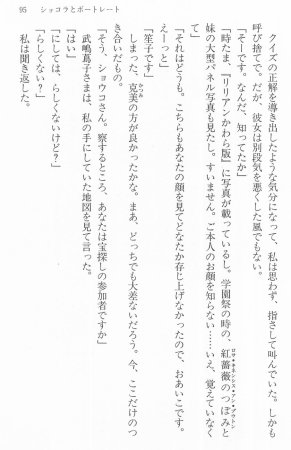 95　ショコラとポートレート
　クイズの正解を導き出したような気分になって、私は思わず、指さして叫んだ。しかも
呼び捨てで。だが、彼女は別段気を悪くした風でもない。
「そーです。なんだ、知ってたか」
「時たま、『リリアンかわら版』に写真が載っているし。学園祭の時の、紅薔薇のつぼみと
妹の大型パネル写真も見たし。すいません。ご本人のお顔を知らない……いえ、覚えていなく
て」
「それはどうも。こちらもあなたの顔を見てどなたか存じ上げなかったので、おあいこです。
えーっと」
「笙子です」
　しまった、克美の方が良かったかな。まあ、どっちでも大差ないだろう。今、ここだけのつ
き合いだもの。
「そう、ショウコさん。察するところ、あなたは宝探しの参加者ですか」
　武嶋蔦子さまは、私の手にしていた地図を見て言った。
「はい」
「にしては、らしくないけど？」
「らしくない？」
　私は聞き返した。